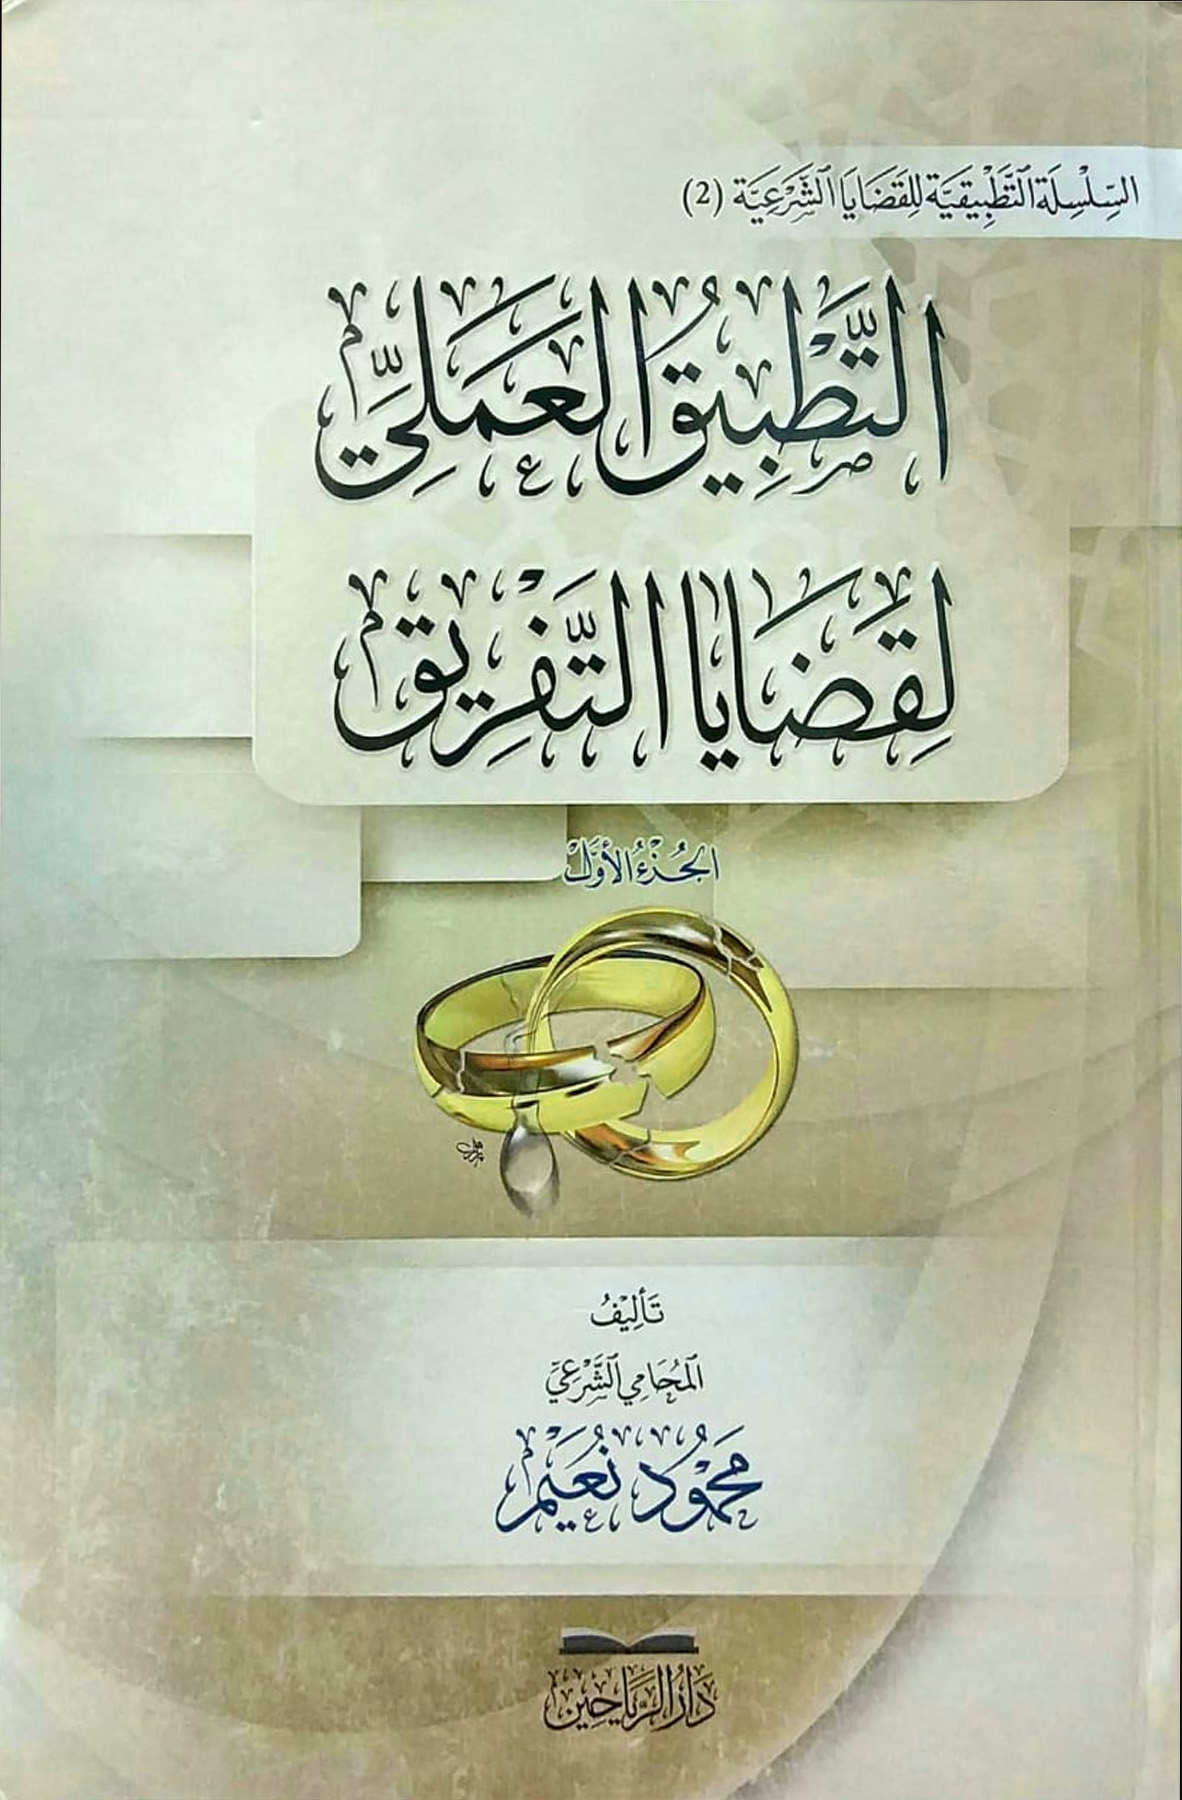 السِّلْسِلَة التَّطْبِيقِيَّة لِلقَضَايَا الشَّرْعِيَّة (2)
التَّطْبِيقُ العَمَلِيّ
لِقَضَايَا التَّفْرِيق
الجُزْءُ الأَوَّل
تَأْلِيفُ
المُحَامِي الشَّرْعِيّ
مَحْمُود نُعَيْم
دَارُ الرَّيَاحِين